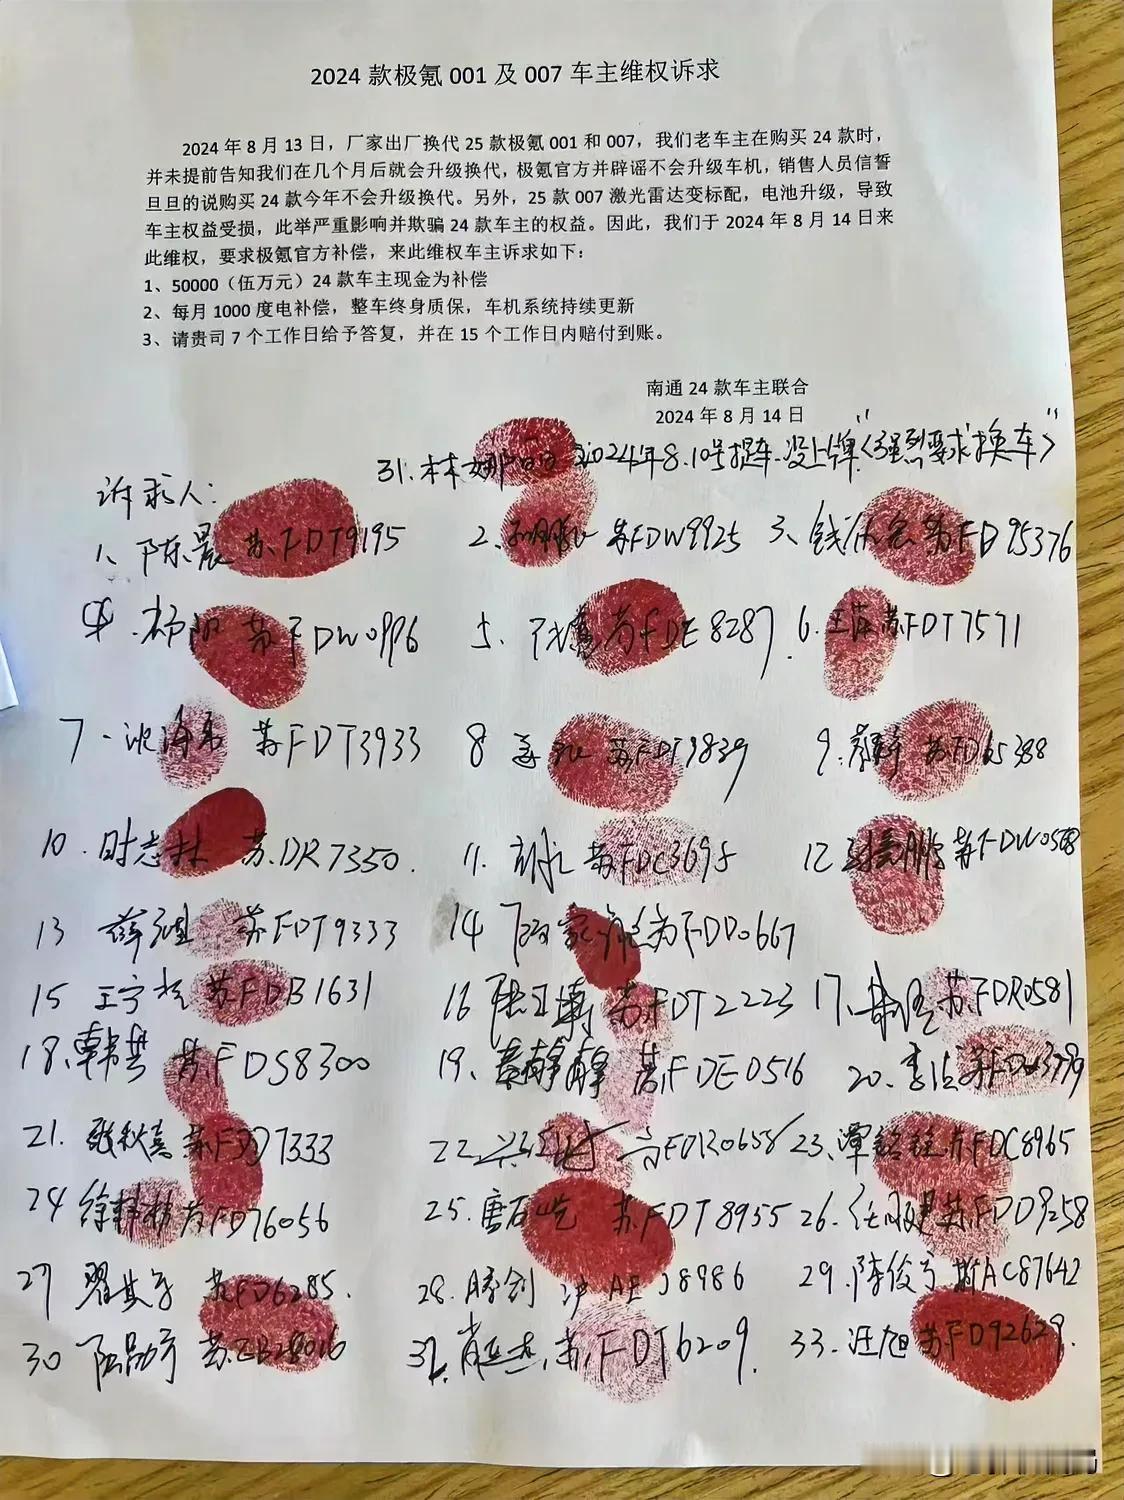 2024 款极氪 001 及 007 车主维权诉求
2024 年 8 月 13 日，厂家出厂换代 25 款极氪 001 和 007，我们老车主在购买 24 款时，
并未提前告知我们在几个月后就会升级换代，极氪官方并辟谣不会升级车机，销售人员信誓
旦旦的说购买 24 款今年不会升级换代。另外，25 款 007 激光雷达变标配，电池升级，导致
车主权益受损，此举严重影响并欺骗 24 款车主的权益。因此，我们于 2024 年 8 月 14 日来
此维权，要求极氪官方补偿，来此维权车主诉求如下：
1、50000（伍万元）24 款车主现金为补偿
2、每月 1000 度电补偿，整车终身质保，车机系统持续更新
3、请贵司 7 个工作日给予答复，并在 15 个工作日内赔付到账。
南通 24 款车主联合
2024 年 8 月 14 日
31.林娜 2024年8.10号提车.没上牌“<强烈要求换车>”
诉求人：
1、陈晨 苏FDT9195 2、苏FDW9925 3、钱 苏FD95376
4. 苏FDW0996 5. 苏FDE8287 6.王萍 苏FDT7571
7.沈海 苏FDT3933 8 苏FDT9839 9. 苏FD65388
10.时志林 苏.DR7350. 11. 苏FDC3695 12 苏FDW0568
13 薛 苏FDT9333 14 苏FDD0667
15 王宇 苏FDB1631 16 苏FDT2223 17. 苏.FDR0581
18.韩 苏FDS8300 19. 静静 苏.FDE0516 20.李 苏FD
21. 张秋 苏FDD7333 22 FDR0658 23.覃 苏FDC8965
24 徐 苏FD76056 25.唐 苏.FDT8955 26.任 苏FDD9258
27 翟其 苏FD6285. 28.滕剑 沪AE J8986 29.陈俊 浙AC87642
30 苏 32.肖 苏.FDT6209. 33.汪旭 苏FD92629.